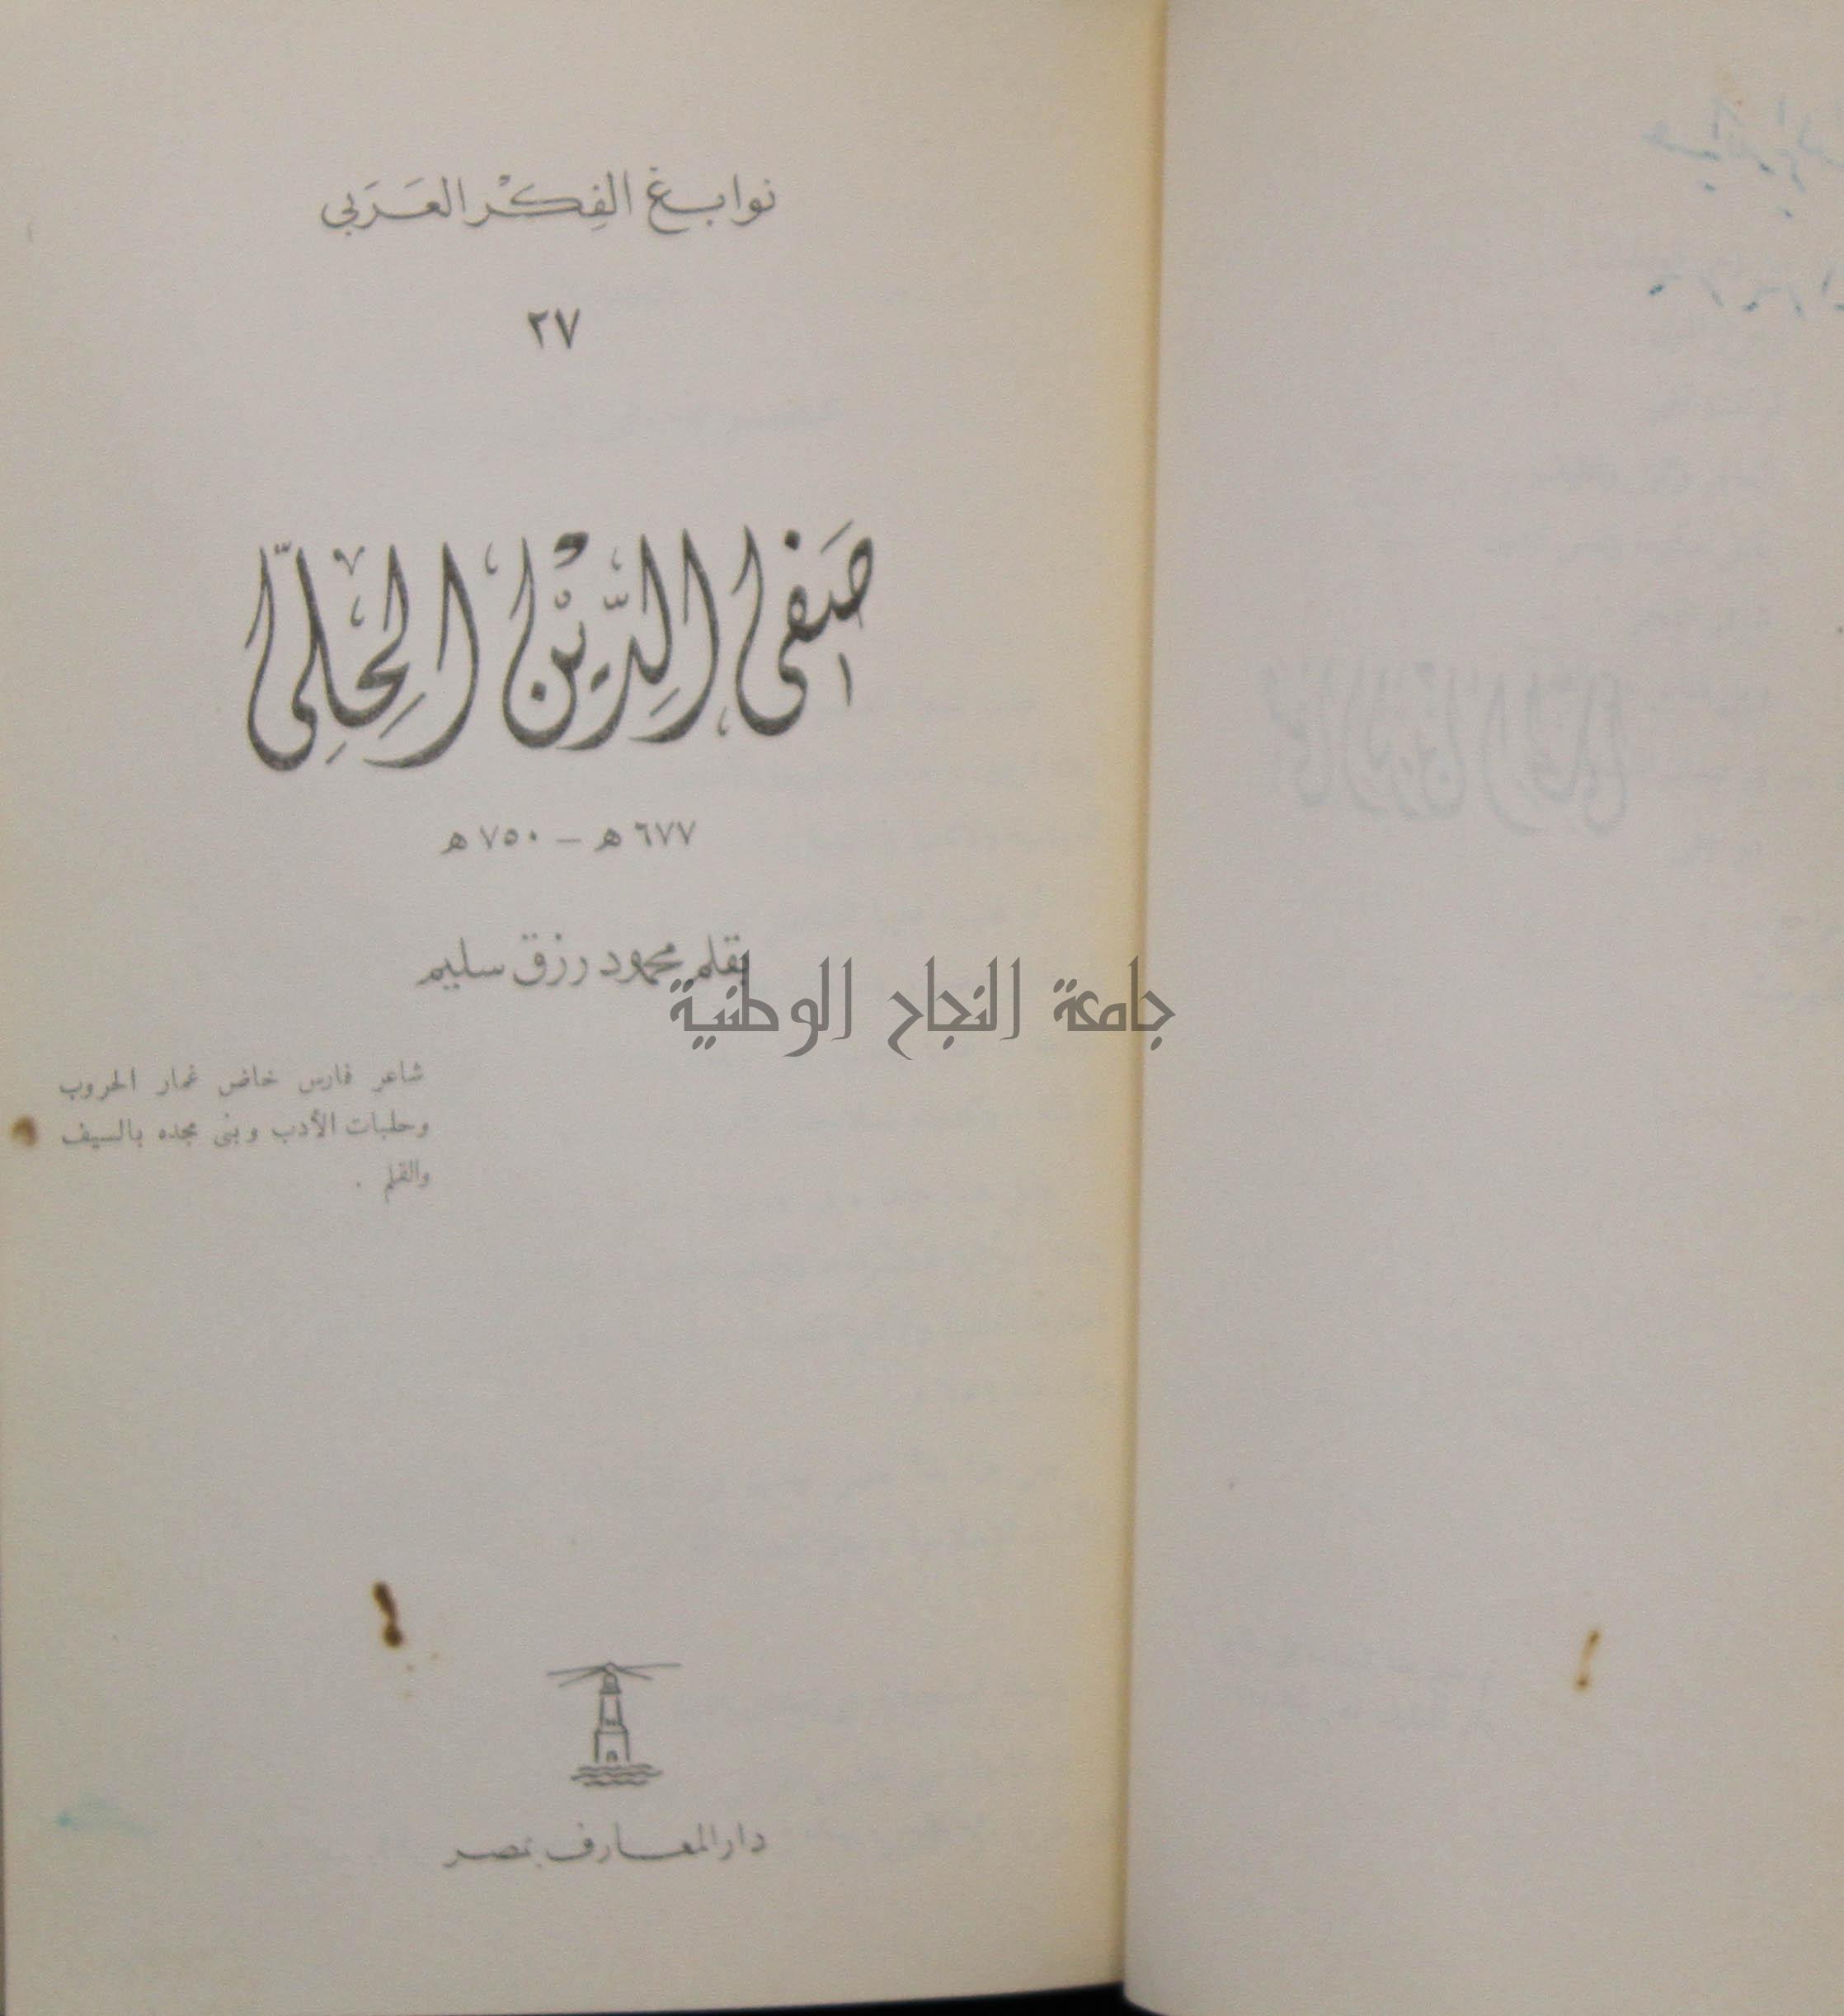 نوابغ الفِكْر العَرَبي
٢٧
صَفى الدِّيْن الحِلِّى
٦٧٧ ه – ٧٥٠ ه
بقلم محمود رزق سليم
جامعة النجاح الوطنية
شاعر فارس خاض غمار الحروب
وحلبات الأدب وبنى مجده بالسيف
والقلم .
دار المعارف بمصر